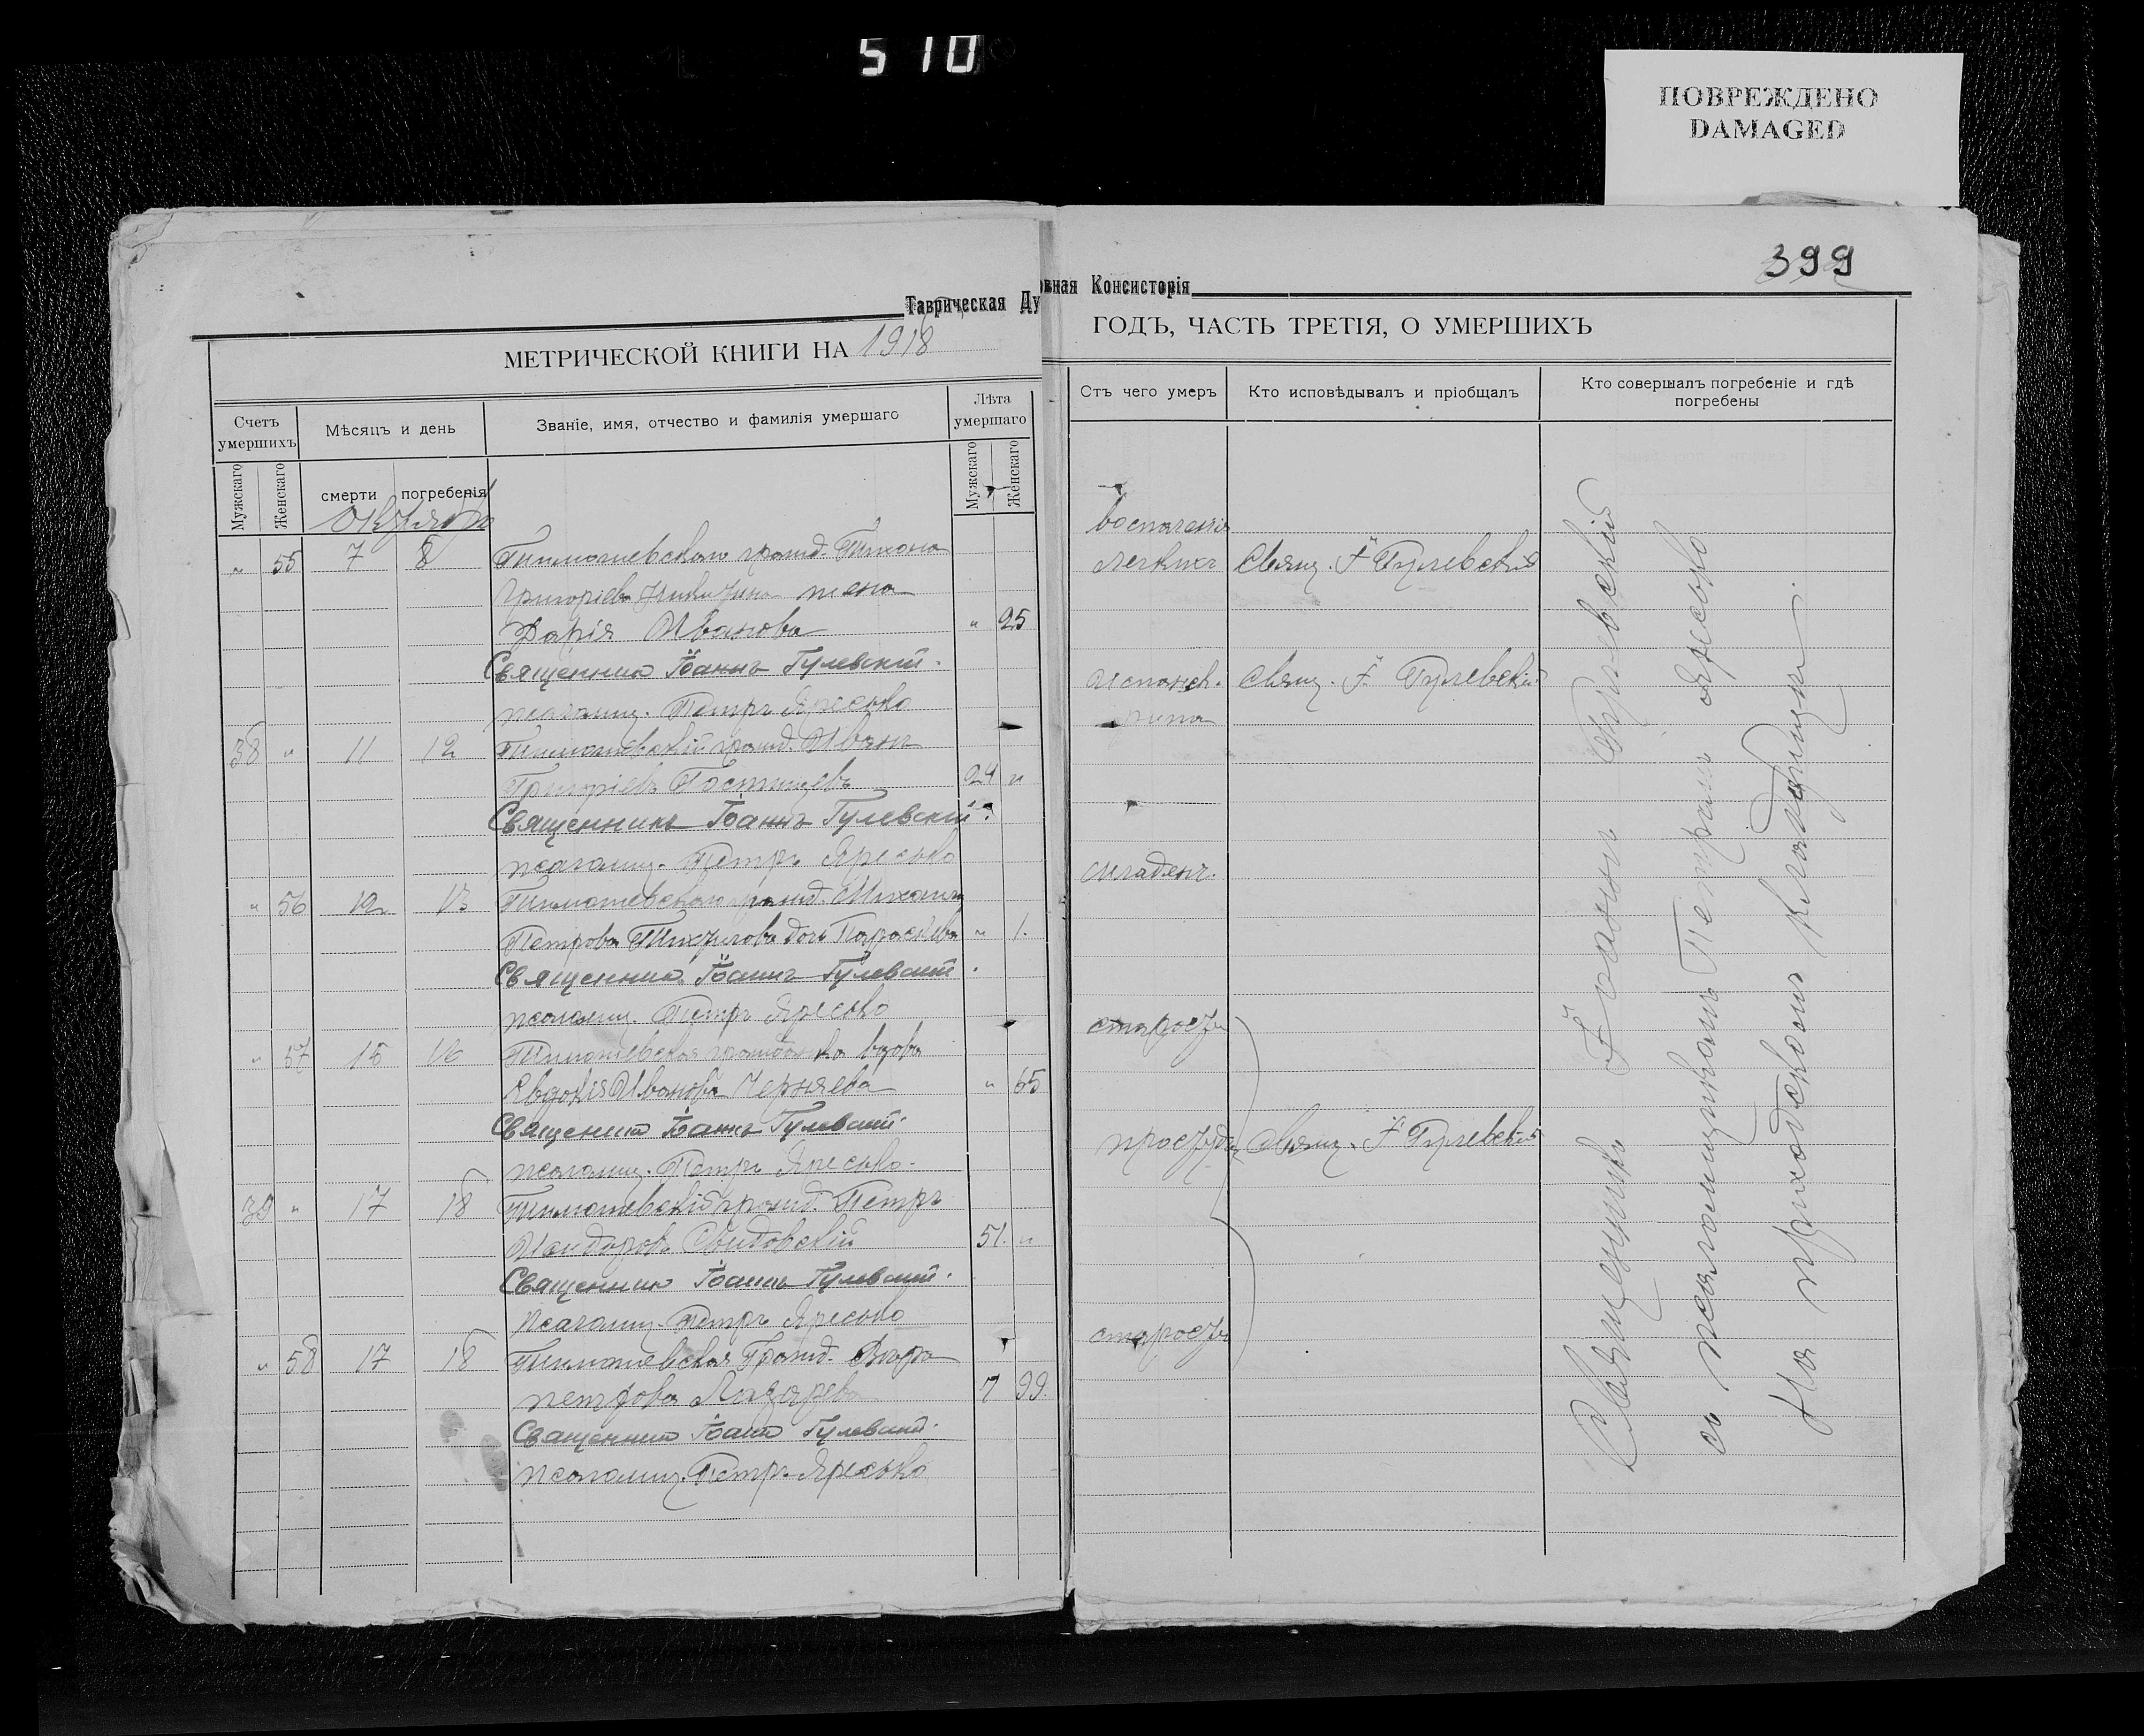 510
ПОВРЕЖДЕНО
DAMAGED
399
Таврическая Духовная Консисторія
МЕТРИЧЕСКОЙ КНИГИ НА 1918 ГОДЪ, ЧАСТЬ ТРЕТІЯ, О УМЕРШИХЪ
Счетъ умершихъ
Мужскаго
Женскаго
Мѣсяцъ и день
смерти
погребенія
Званіе, имя, отчество и фамилія умершаго
Лѣта умершаго
Мужскаго
Женскаго
Отъ чего умеръ
Кто исповѣдывалъ и пріобщалъ
Кто совершалъ погребеніе и гдѣ погребены
Октябрь
" 55 7 8 Тимошевскаго гражд. Тихона
Григоріева Никитина жена
Дарія Иванова " 25
воспаленія
легкихъ Свящ. І. Гулевскій
Священникъ Іоаннъ Гулевскій.
псаломщ. Петръ Яресько
38 " 11 12 Тимошевскій гражд. Иванъ
Григоріевъ Постищевъ 24 "
испанск. Свящ. І. Гулевскій
Священникъ Іоаннъ Гулевскій.
псаломщ. Петръ Яресько
" 56 12 13 Тимошевскаго гражд. Михаила
Петрова дочь Параскева " 1.
младенч.
Священникъ Іоаннъ Гулевскій.
псаломщ. Петръ Яресько
" 57 15 16 Тимошевская гражданка вдова
Евдокія Иванова Черняева " 65
старость
Священникъ Іоаннъ Гулевскій.
псаломщ. Петръ Яресько.
39 " 17 18 Тимошевскій гражд. Петръ
51. "
простуда Свящ. І. Гулевскій
Священникъ Іоаннъ Гулевскій.
псаломщ. Петръ Яресько
" 58 17 18 Тимошевская Гражд. Вѣра
Петрова Лазарева " 99
старость
Священникъ Іоаннъ Гулевскій.
псаломщ. Петръ Яресько
Священникъ Іоаннъ Гулевскій
съ псаломщикомъ Петромъ Яресько
На приходскомъ кладбищѣ.